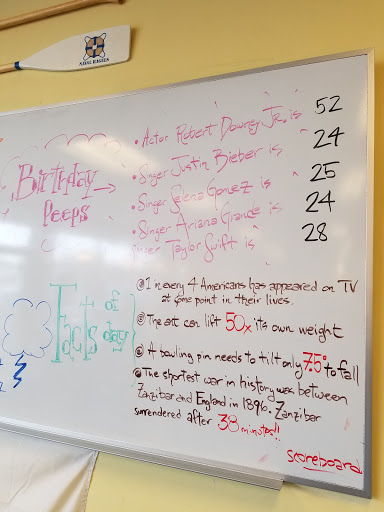 • Actor Robert Downey Jr. is 52
• Singer Justin Bieber is 24
Birthday → Peeps
• Singer Selena Gomez is 25
• Singer Ariana Grande is 24
Singer Taylor Swift is 28
Facts of day
① 1 in every 4 Americans has appeared on TV
at some point in their lives.
② The ant can lift 50x its own weight
③ A bowling pin needs to tilt only 7.5° to fall
④ The shortest war in history was between
Zanzibar and England in 1896. Zanzibar
surrendered after 38 minutes!!
scoreboard